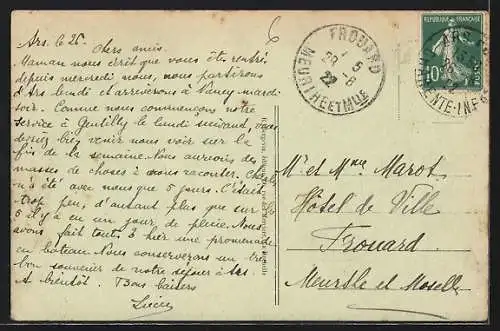 Ars. le 26.
chers amis.
Maman nous écrit que vous êts rentrés
depuis mercredi nous, nous partirons
d'Ars lundi et arriverons à Nancy mardi
soir. Comme nous commençons notre
service à Gentilly le lundi suivant, vous
devriez bien venir nous voir sur la
fin de la semaine. Nous aurons des
masses de choses à vous raconter.
n'a été avec nous que 5 jours. C'était
trop peu, d'autant plus que sur
5 il y a eu un jour de pluie. Nous
avons fait tout hier une promenade
en bateau. Nous conserverons un très
bon souvenir de notre séjour à Ars.
A bientôt. Bons baisers
Lucien
6
FROUARD
MEURTHE ET MLLE
22
REPUBLIQUE FRANÇAISE
10
POSTES
ARS
CHARENTE-INFRE
Mr et Mme Marot
Hôtel de Ville
Frouard
Meurthe et Moselle